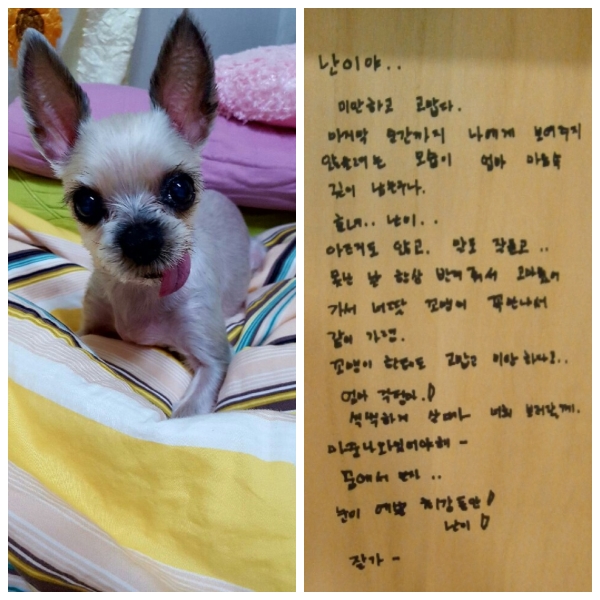 난이야..
미안하고 고맙다.
마지막 순간까지 나에게 보여주지
않을려는 모습이 엄마 마음속
깊이 남는구나.
효녀.. 난이..
아프지도 않고. 말도 잘듣고..
못난 날 항상 반겨줘서 고마웠어
가서 너딸 꼬맹이 꼭 만나서
같이 가렴.
꼬맹이 한테도 고맙고 미안하다!..
엄마 걱정마.!
씩씩하게 살다가 너희 보러갈께.
마중나와있어야해 -
꿈에서 보자..
난이 예쁜
난이!
잘가 -